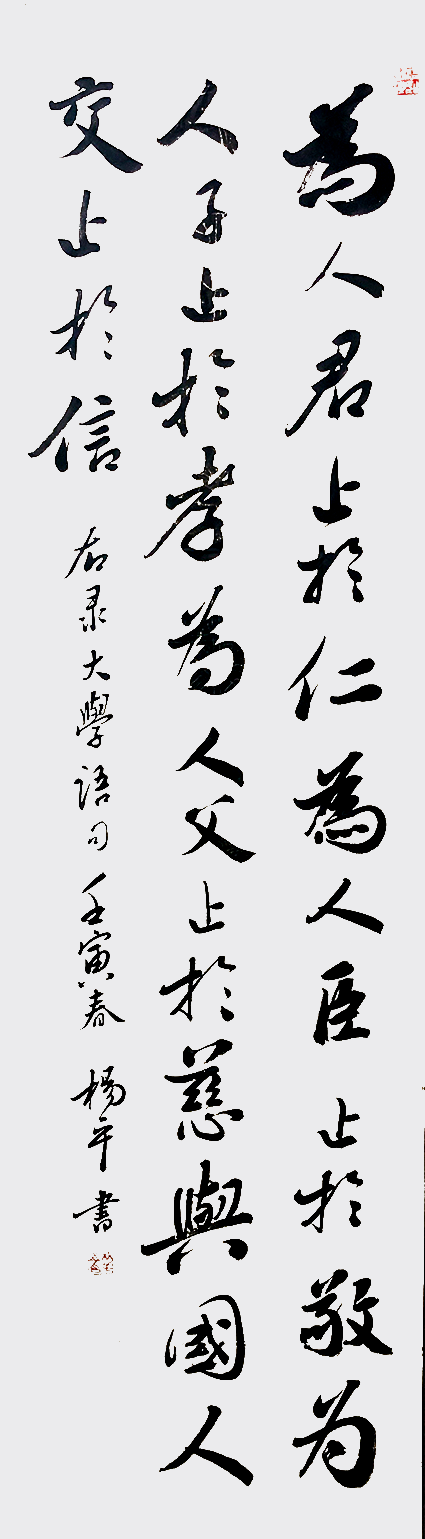 為人君止於仁為人臣止於敬为
人子止於孝為人父止於慈與國人
交止於信
右录大學語句壬寅春 楊平書